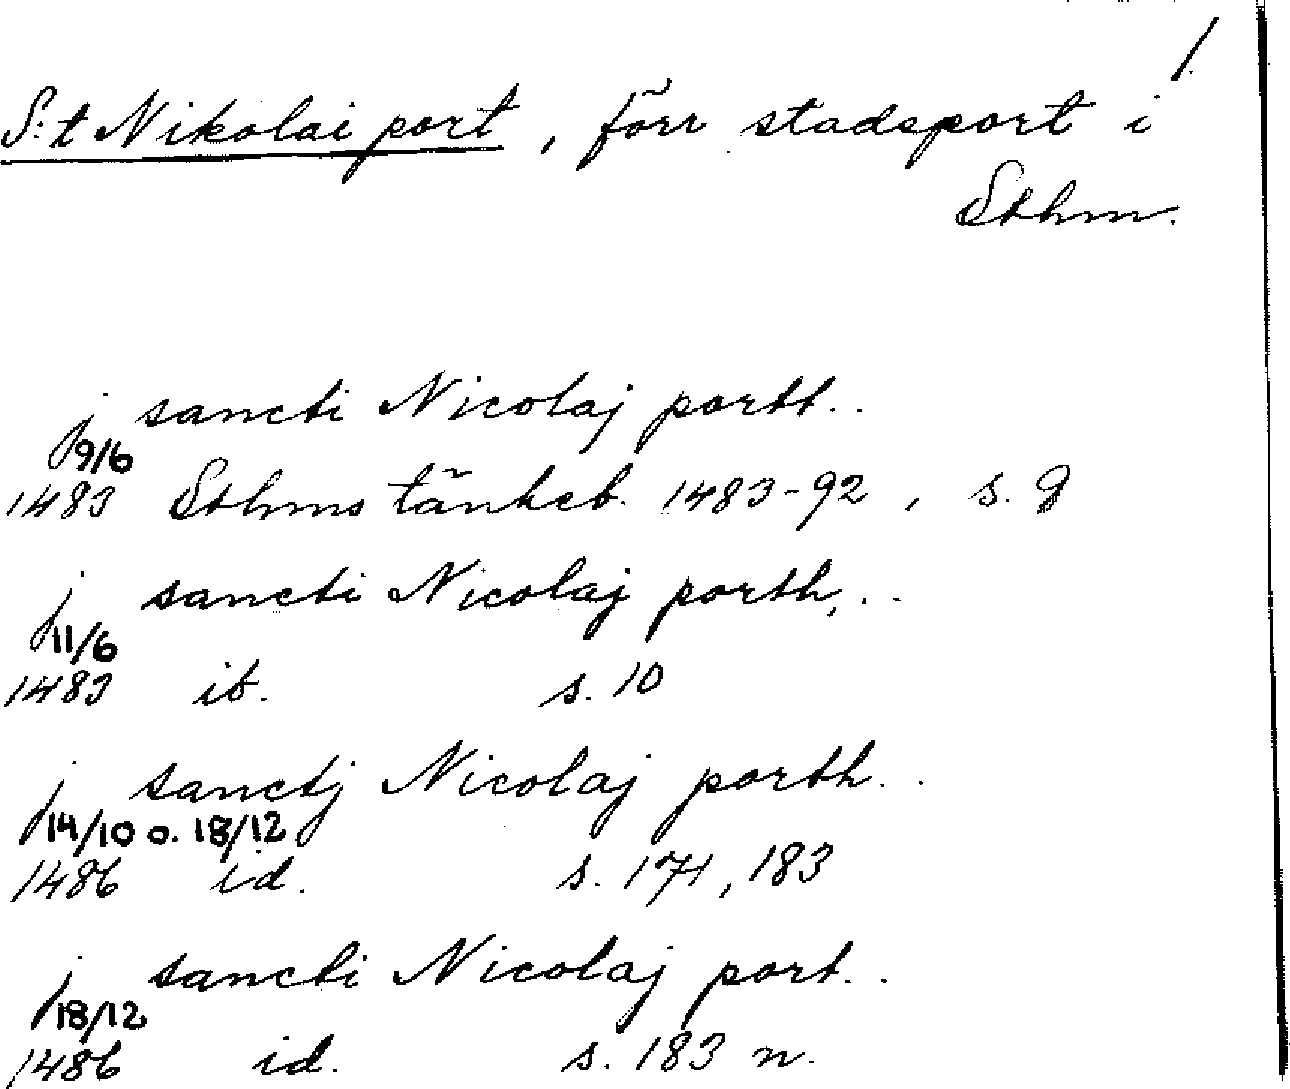 1.
S:t Nikolai port, förr stadsport i
Sthm.
j sancti Nicolaj portt..
9/6
1483 Sthms tänkeb. 1483-92, s. 9
j sancti Nicolaj porth...
11/6
1483 ib. s. 10
j sanctj Nicolaj porth..
14/10 o. 18/12
1486 id. s. 171, 183
j sancti Nicolaj port..
18/12
1486 id. s. 183 n.